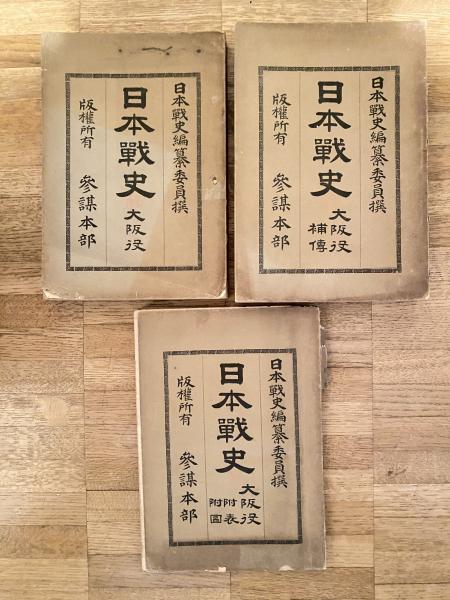 日本戰史編纂委員撰
日本戰史 大阪役
版權所有 參謀本部
日本戰史編纂委員撰
日本戰史 大阪役
補傳
版權所有 參謀本部
日本戰史編纂委員撰
日本戰史 大阪役
附表
附圖
版權所有 參謀本部